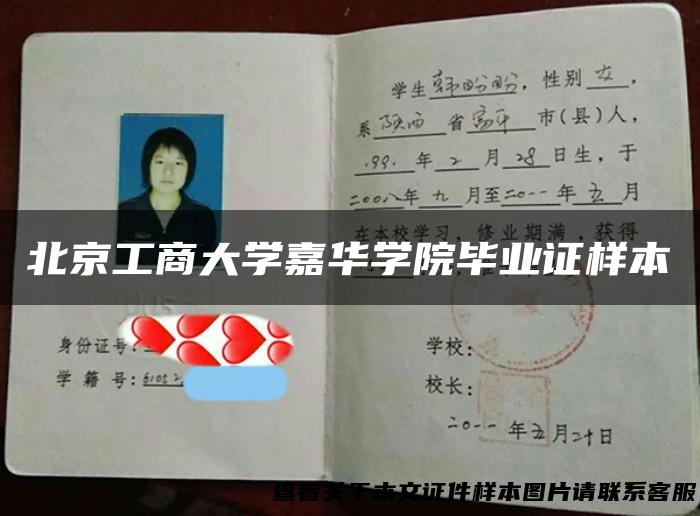 学生韩盼盼，性别女，
系陕西省富平市(县)人，
1991年2月28日生，于
二00八年九月至二0一一年五月
在本校学习，修业期满，获得
北京工商大学嘉华学院毕业证样本
身份证号:
学籍号:61052
学校:
校长:
二0一一年五月二十日
查看关于本文证件样本图片请联系客服